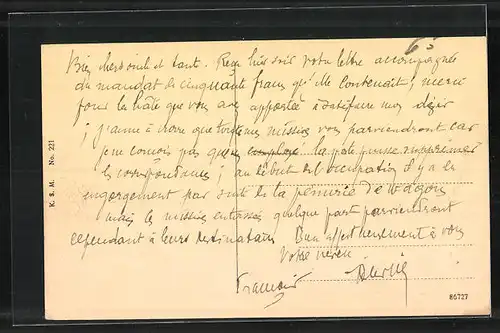 Bien chers oncle et tante. Reçu hier soir votre lettre accompagnée
du mandat de cinquante francs qu'elle contenait; merci
pour la hâte que vous avez apportée à satisfaire mon désir
; j'aime à croire que toutes mes missives vous parviendront car
je ne conçois pas que la poste puisse supprimer
les correspondances; au début de l'occupation il y a eu
engorgement par suite de la pénurie de wagons
mais les missives entassées quelque part parviendront
cependant à leurs destinataires Bien affectueusement à vous
Votre neveu
K. S. M. No. 221
86727